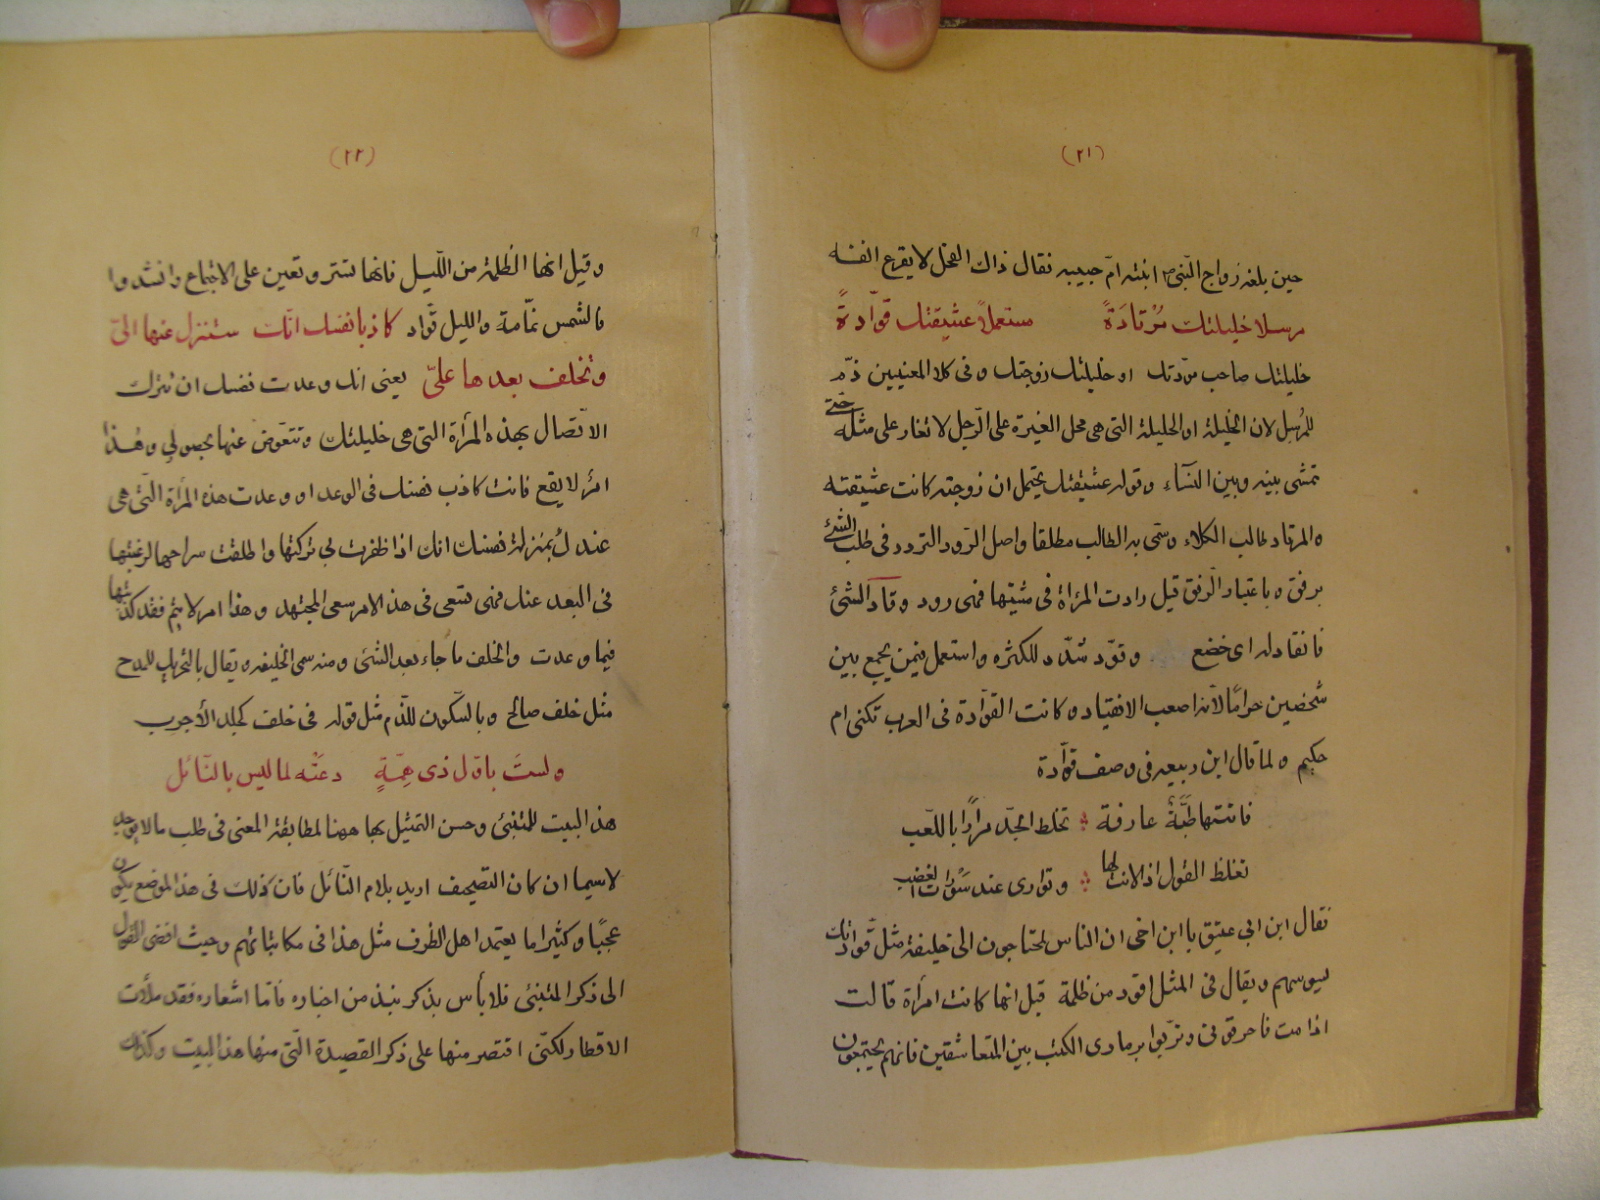 (٢١)
حين بلغه زواج النبى ص ابنته امّ حبيبه نقال ذاك الفحل لا يقرع انفه
مرسلا خليلتك مُرتادَةً مستعملاً عشيقتك قوّادةً
خليلتك صاحب مودّتك او حليلتك زوجتك وفى كلا المعنيين ذمّ
للمُرسِل لان الخليلة او الحليلة التى هى محل الغيرة على الرّجل لا تغار على مثله حتّى
تمشى بينه وبين النسآء وقوله عشيقتك يحتمل ان زوجته كانت عشيقته
والمرتاد طالب الكلاء وسمّى به الطالب مطلقا واصل الرّود التردد فى طلب الشئ
برفق وباعتبار الرّفق قيل رادت المرٔاة فى مشيتها فهى رود وقاد الشئ
فانقاد له اى خضع وقوّد شدّد للكثره واستعمل فيمن يجمع بين
شخصين حرامًا لأنه اصعب الانقياد وكانت القوّادة فى العرب تكنى ام
حكيم ولما قال ابن ربيعه فى وصف قوّادة
فاتتها طَبَّةٌ عارفة تخلط الجدّ مرارًا باللعب
تغلظ القول اذا لانت لها وتوارى عند سَوْرات الغضب
فقال ابن ابى عتيق يا ابن اخى ان الناس لمحتاجون الى خليفة مثل قوّادتك
يسوسهم ويقال فى المثل اقود من ظلمة قيل انها كانت امرأة قالت
اذا مت فاحرقونى وتربّوا برمادى الكتب بين المتعاشقين فانهم يجتمعون
(٢٢)
وقيل انها الظلمة من اللّيل فانها تستر وتعين على الاجتماع وانشدوا
فالشمس نمّامة والليل قوّاد كاذبا نفسك انّك ستنزل عنها الىّ
وتخلف بعدها علىّ يعنى انك وعدت نفسك ان تترك
الاتّصال بهذه المرٔاة التى هى خليلتك وتتعوّض عنها بحصولى وهٰذا
امرٌ لا يقع فانت كاذب نفسك فى الوعد او وعدت هذه المرٔاة التى هى
عندك بمنزلة نفسك انك اذا ظفرت بى تركتها واطلقت سراحها لرغبتها
فى البعد عنك فهى تسعى فى هذا الامر سعى المجتهد وهذا امر لا يتم فقد كذبتها
فيما وعدت والخلف ما جاء بعد الشئ ومنه سمى الخليفه ويقال بالتحريك للمدح
مثل خلف صالح وبالسّكون للذّم مثل قوله فى خلف كجلد الأجرب
ولستَ باوّل ذى هِمّةٍ دعَتْه لما ليس بالنّائل
هذا البيت للمتنبئ وحسن التمثيل بها ههنا لمطابقة المعنى فى طلب ما لا يوجد
لا سيما ان كان التصحيف اريد بلام النّائل فان ذلك فى هذا الموضع يكون
عجبًا وكثيرا ما يعتمد اهل الظرف مثل هذا فى مكاتباتهم وحيث افضى القول
الى ذكر المتنبئ فلا بأس بذكر نبذ من اخباره فامّا اشعاره فقد ملأت
الاقطار ولكنى اقتصر منها على ذكر القصيدة التّى منها هذا البيت وكذلك